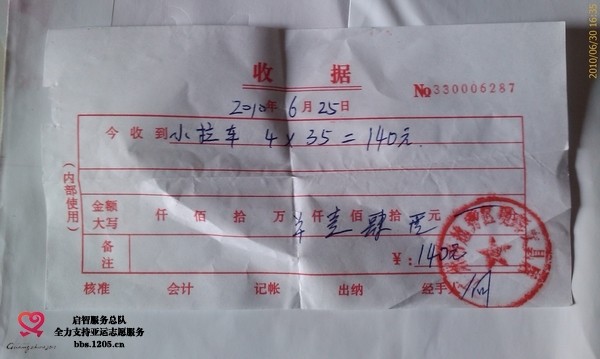 2010/06/30 16:35
收 据
No 330006287
2010年 6 月 25日
今 收 到 小拉车 4 x 35 = 140元
(内部使用)
金额 大写 仟 佰 拾 万 仟 佰 拾 元
壹 肆
备注 ¥: 140元
核准 会计 记帐 出纳 经手
启智服务总队
全力支持亚运志愿服务
bbs.1205.cn